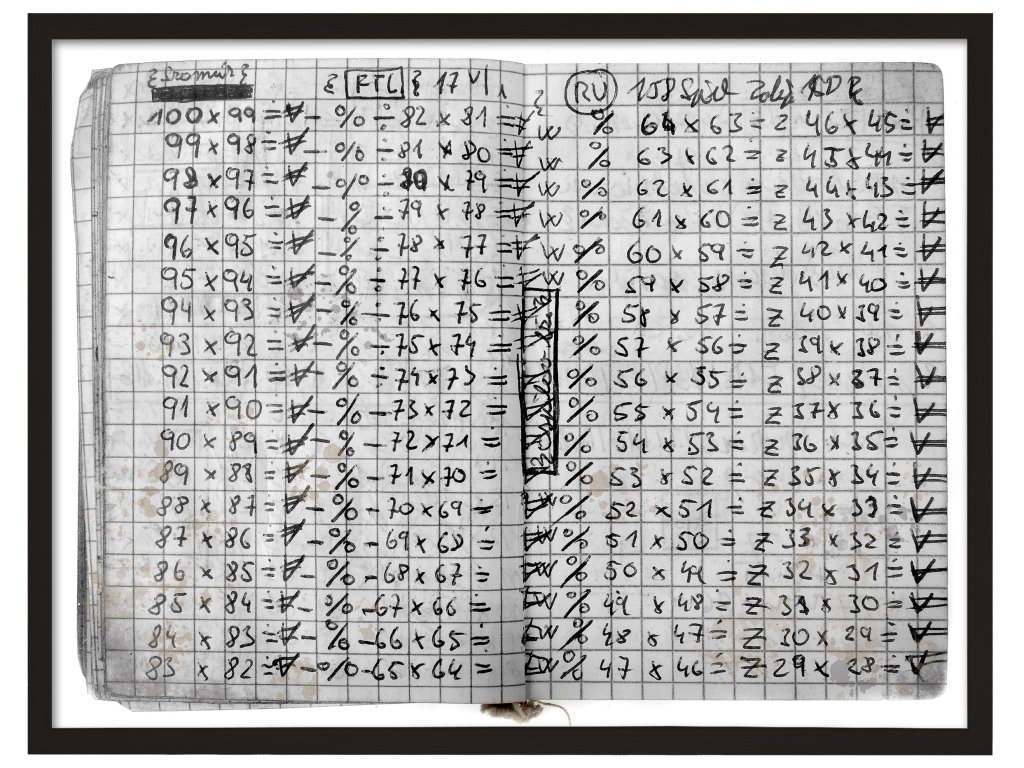 { RTL } 17 VI
100 x 99 ÷ ∀ – % ÷ 82 x 81 ÷
99 x 98 ÷ ∀ – % ÷ 81 x 80 ÷
98 x 97 ÷ ∀ – % ÷ 80 x 79 ÷
97 x 96 ÷ ∀ – % ÷ 79 x 78 ÷
96 x 95 ÷ ∀ – % ÷ 78 x 77 ÷
95 x 94 ÷ ∀ – % ÷ 77 x 76 ÷
94 x 93 ÷ ∀ – % ÷ 76 x 75 ÷
93 x 92 ÷ ∀ – % ÷ 75 x 74 ÷
92 x 91 ÷ ∀ – % ÷ 74 x 73 ÷
91 x 90 ÷ ∀ – % – 73 x 72 ÷
90 x 89 ÷ ∀ – % – 72 x 71 ÷
89 x 88 ÷ ∀ – % – 71 x 70 ÷
88 x 87 ÷ ∀ – % – 70 x 69 ÷
87 x 86 ÷ ∀ – % – 69 x 68 ÷
86 x 85 ÷ ∀ – % – 68 x 67 ÷
85 x 84 ÷ ∀ – % – 67 x 66 ÷
84 x 83 ÷ ∀ – % – 66 x 65 ÷
83 x 82 ÷ ∀ – % – 65 x 64 ÷
{ RU 158
W % 64 x 63 ÷ z 46 x 45 ÷ ∀
W % 63 x 62 ÷ z 45 x 44 ÷ ∀
W % 62 x 61 ÷ z 44 x 43 ÷ ∀
W % 61 x 60 ÷ z 43 x 42 ÷ ∀
W % 60 x 59 ÷ z 42 x 41 ÷ ∀
W % 59 x 58 ÷ z 41 x 40 ÷ ∀
% 58 x 57 ÷ z 40 x 39 ÷ ∀
% 57 x 56 ÷ z 39 x 38 ÷ ∀
% 56 x 55 ÷ z 38 x 37 ÷ ∀
% 55 x 54 ÷ z 37 x 36 ÷ ∀
% 54 x 53 ÷ z 36 x 35 ÷ ∀
% 53 x 52 ÷ z 35 x 34 ÷ ∀
W % 52 x 51 ÷ z 34 x 33 ÷ ∀
W % 51 x 50 ÷ z 33 x 32 ÷ ∀
W % 50 x 49 ÷ z 32 x 31 ÷ ∀
W % 49 x 48 ÷ z 31 x 30 ÷ ∀
W % 48 x 47 ÷ z 30 x 29 ÷ ∀
W % 47 x 46 ÷ z 29 x 28 ÷ ∀